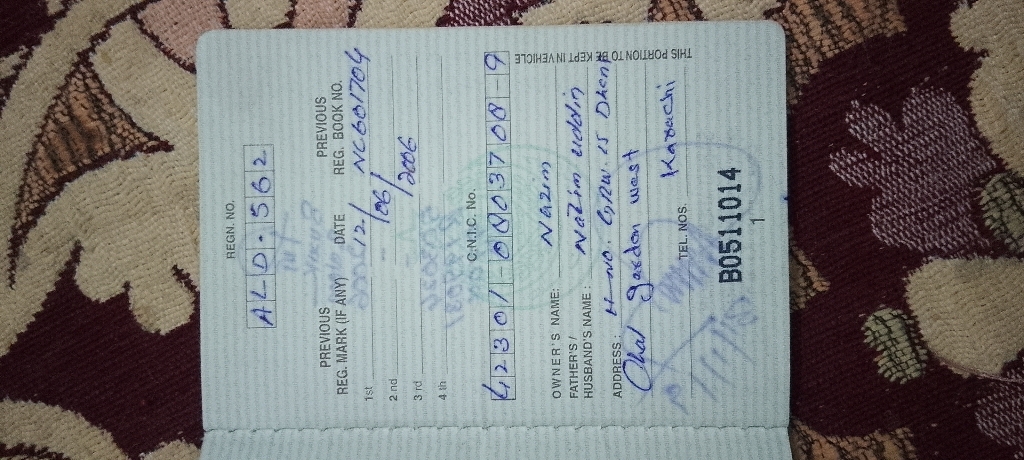 REGN. NO.
ALD-562
PREVIOUS REG. MARK (IF ANY) DATE PREVIOUS REG. BOOK NO.
1st 12/06/2006 NC601704
2 nd
3 rd
4 th
C.N.I.C. No.
42301-0803708-9
OWNER'S NAME: Nazim
FATHER'S /
HUSBAND'S NAME: Nazim uddin
ADDRESS: H-NO. GRW. 15
garden west Karachi
TEL. NOS.
B0511014
1
THIS PORTION TO BE KEPT IN VEHICLE